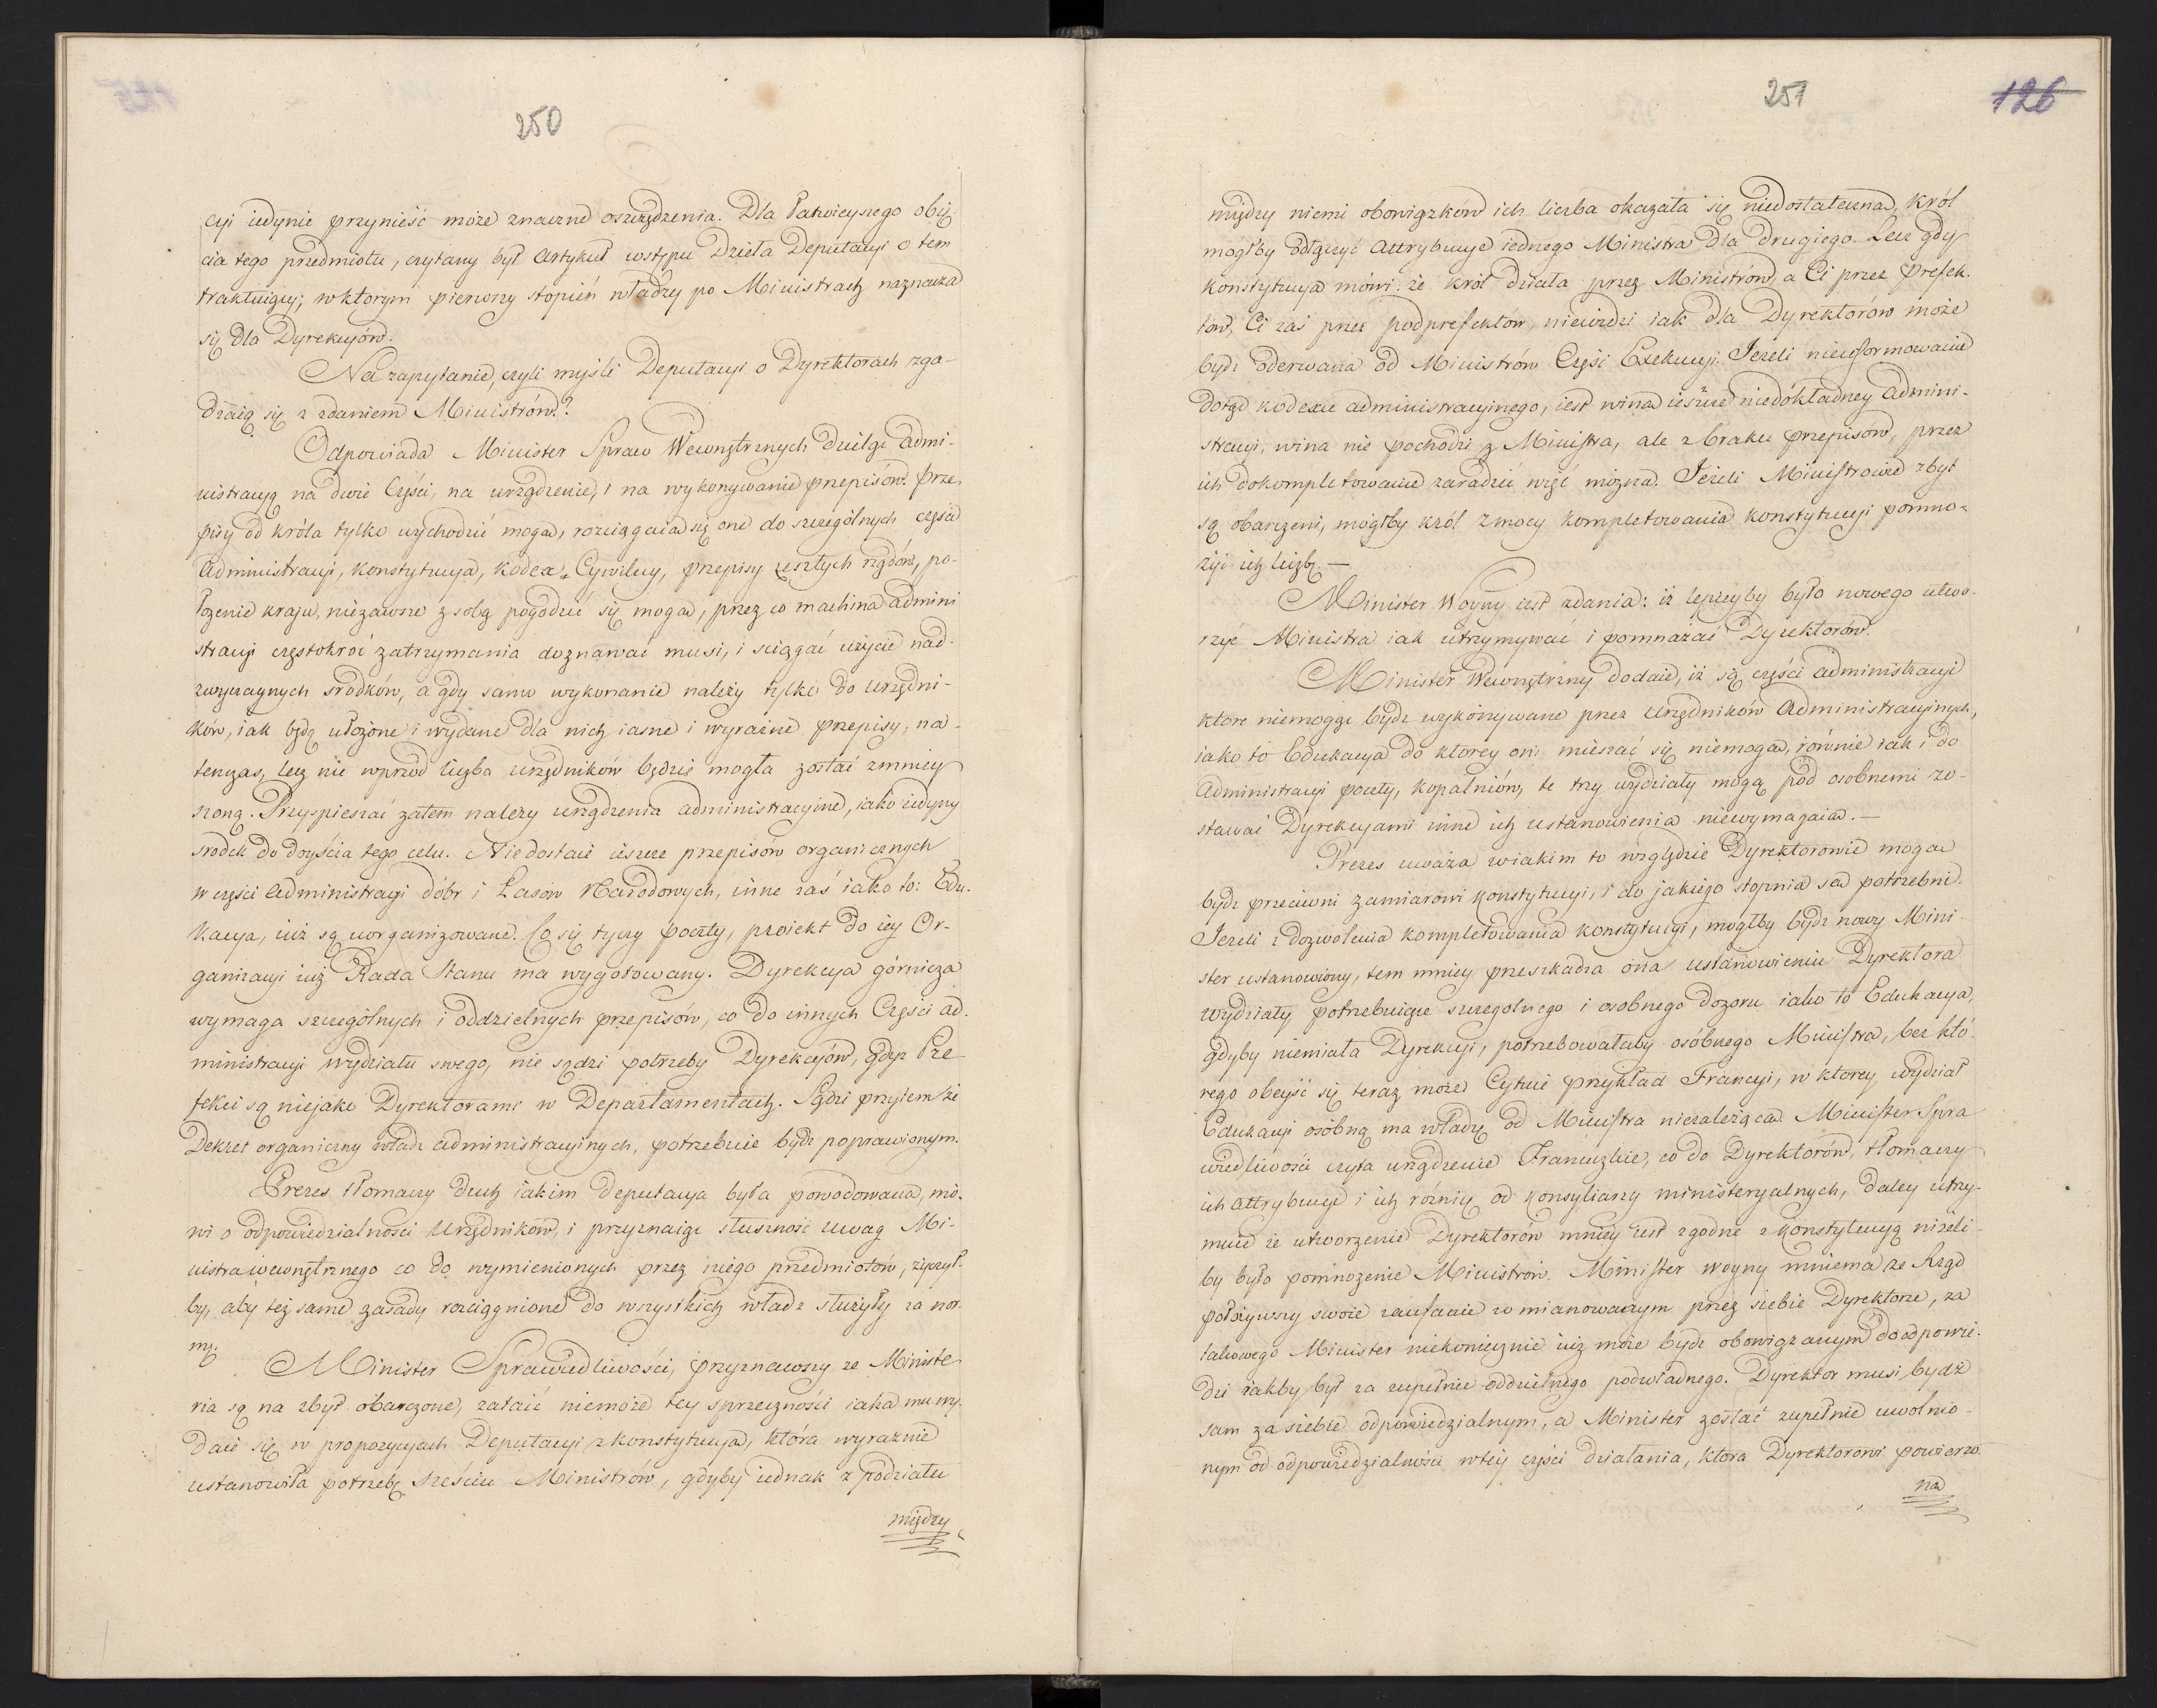 250
cyi iedynie przynieść może znaczne oszczędzenia. Dla łatwieyszego obię-
cia tego przedmiotu, czytany był Artykuł wstępu Dzieła Deputacyi o tem
traktuiący; wktorym pierwszy stopień władzy po Ministrach naznacza
się dla Dyrekcyów.
Na zapytanie, czyli myśli Deputacyi o Dyrektorach zga-
dzaią się z zdaniem Ministrów?
Odpowiada Minister Spraw Wewnętrznych dzieląc Admi-
nistracyą na dwie Części, na urządzenie, i na wykonywanie przepisów. Prze
pisy od króla tylko wychodzić mogą, rozciągaią się one do szczególnych części
Administracyi, Konstytucya, Kodex Cywilny, przepisy zeszłych rządów, po-
łożenie kraju, niezawsze z sobą pogodzić się mogą, przez co machina admini
stracyi częstokroć zatrzymania doznawać musi, i sciągać użycie nad-
zwyczaynych srodków, a gdy samo wykonanie należy tylko do Urzędni-
ków, iak będą ułożone i wydane dla nich iasne i wyraźne przepisy, na-
tenczas, lecz nie wprzód liczba urzędników będzie mogła zostać zmniey
szoną. Przyspieszać zatem należy urządzenia administracyine, iako iedyny
srodek do doyścia tego celu. Niedostaie ieszcze przepisów organicznych
w części Administracyi dóbr i Lasow Narodowych, inne zaś iako to: Edu-
kacya, iuż są uorganizowane. Co się tyczy poczty, proiekt do iey Or-
ganizacyi iuż Rada Stanu ma wygotowany. Dyrekcya górnicza
wymaga szczególnych i oddzielnych przepisów, co do innych Części ad-
ministracyi wydziału swego, nie sądzi potrzeby Dyrekcyów, gdyż Pre
fekci są niejako Dyrektorami w Departamentach. Sądzi przytem że
Dekret organiczny władz administracyinych, potrzebuie bydź poprawionym.
Prezes tłomaczy duch iakim Deputacya była powodowana, mó-
wi o odpowiedzialności Urzędników, i przyznaiąc słuszność uwag Mi-
nistra wewnętrznego co do wymienionych przez niego przedmiotów, życzył-
by, aby też same zasady rozciągnione do wszystkich władz służyły za nor-
mę.
Minister Sprawiedliwości, przyznawszy że Ministe-
ria są na zbyt obarczone, zataić niemoże tey sprzeczności iaka mu wy-
daie się w propozycyach Deputacyi z konstytucyą, która wyraźnie
ustanowiła potrzebę sześciu Ministrów, gdyby iednak z podziału
między
251
126
między niemi obowiązków ich liczba okazała się niedostateczną, Król
mógłby odłączyć Attrybucye iednego Ministra dla drugiego. Lecz gdy
konstytucya mówi: że król działa przez Ministrów, a Ci przez Prefek-
tów, Ci zaś przez podprefektów, niewidzi iak dla Dyrektorów może
bydź oderwana od Ministrów Część Exekucyi. Jeżeli nieuformowanie
dotąd kodexu administracyinego, iest winą ieszcze niedokładney admini-
stracyi, wina nie pochodzi z Ministra, ale z braku przepisów, przez
ich dokompletowanie zaradzić więc można. Jeżeli Ministrowie zbyt
są obarczeni, mógłby król z mocy kompletowania konstytucyi pomno-
żyć ich liczbę. —
Minister Woyny iest zdania: iż lepieyby było nowego utwo-
rzyć Ministra iak utrzymywać i pomnażać Dyrektorów.
Minister Wewnętrzny dodaie, iż są części administracyi
ktore niemogą bydź wykonywane przez Urzędników Administracyinych,
iako to Edukacya do ktorey oni mieszać się niemogą, równie iak i do
Administracyi poczty, kopalniów, te trzy wydziały mogą pod osobnemi zo-
stawać Dyrekcyami inne ich ustanowienia niewymagaią. —
Prezes uważa w iakim to względzie Dyrektorowie mogą
bydź przeciwni zamiarowi konstytucyi, i do jakiego stopnia są potrzebni.
Jezeli z dozwolenia kompletowania konstytucyi, mógłby bydź nowy Mini-
ster ustanowiony, tem mniey przeszkadza ona ustanowieniu Dyrektora
wydziały, potrzebuiące szczególnego i osobnego dozoru iako to Edukacya,
gdyby niemiała Dyrekcyi, potrzebowałaby osóbnego Ministra, bez któ-
rego obeyść się teraz może. Cytuie przykład Francyi, w ktorey wydział
Edukacyi osóbną ma władzę od Ministra niezależącą. Minister Spra
wiedliwości czyta urządzenie Francuzkie, co do Dyrektorów, tłomaczy
ich attrybucye i ich różnicę od konsyliarzy ministeryalnych, daley utrzy-
muie że utworzenie Dyrektorów mniey iest zgodne z konstytucyą niżeli-
by było pomnożenie Ministrów. Minister woyny mniema że Rząd
położywszy swoie zaufanie w mianowanym przez siebie Dyrektorze, za
takowego Minister niekoniecznie iuż może bydź obowiązanym do odpowie-
dzi iakby był za zupełnie oddzielnego podwładnego. Dyrektor musi bydź
sam za siebie odpowiedzialnym, a Minister zostać zupełnie uwolnio-
nym od odpowiedzialności wtey części działania, ktora Dyrektorowi powierzo-
na